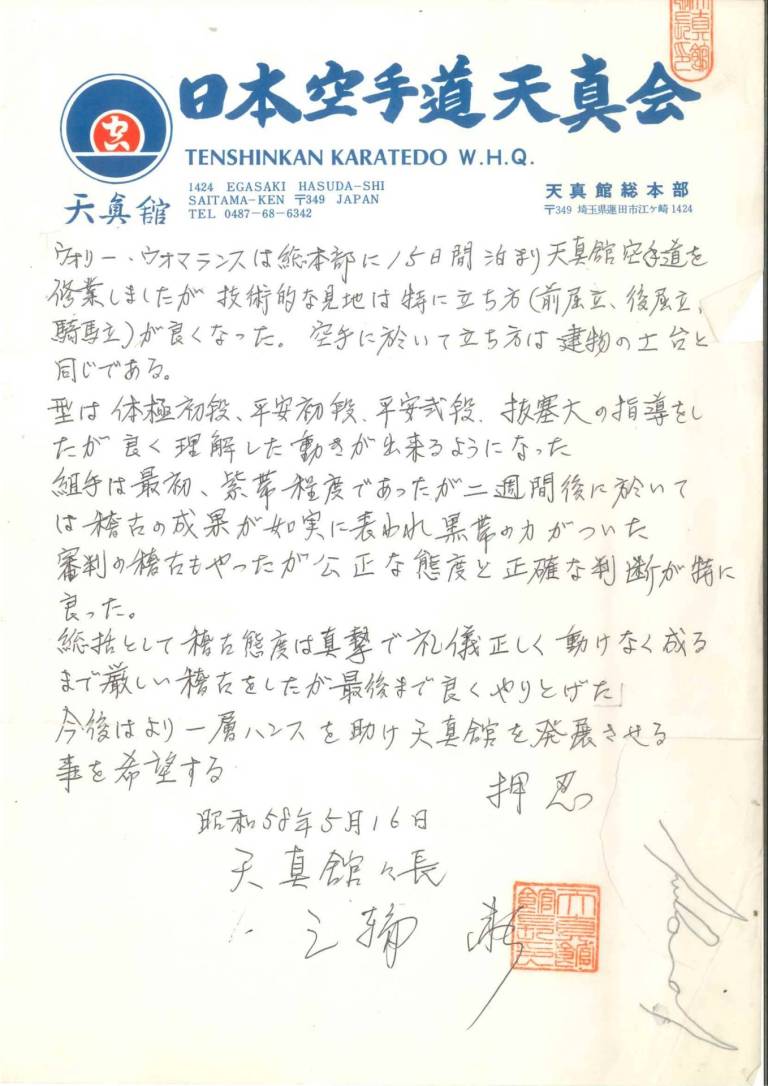 日本空手道天真会
TENSHINKAN KARATEDO W.H.Q.
天真館
1424 EGASAKI HASUDA-SHI
SAITAMA-KEN 〒349 JAPAN
TEL 0487-68-6342
天真館総本部
〒349 埼玉県蓮田市江ヶ崎1424
ウォリー・ウオマランスは総本部に15日間泊まり天真館空手道を
修業しましたが技術的な見地は特に立ち方(前屈立、後屈立、
騎馬立)が良くなった。空手に於いて立ち方は建物の土台と
同じである。
型は体極初段、平安初段、平安弐段、抜塞大の指導をし
たが良く理解した動きが出来るようになった
組手は最初、紫帯程度であったが二週間後に於いて
は稽古の成果が如実に表われ黒帯の力がついた
審判の稽古もやったが公正な態度と正確な判断が特に
良った。
総括として稽古態度は真摯で礼儀正しく動けなく成る
まで厳しい稽古をしたが最後まで良くやりとげた」
今後はより一層ハンスを助け天真館を発展させる
事を希望する
押忍
昭和58年5月16日
天真館々長
三輪
天真館館長之印